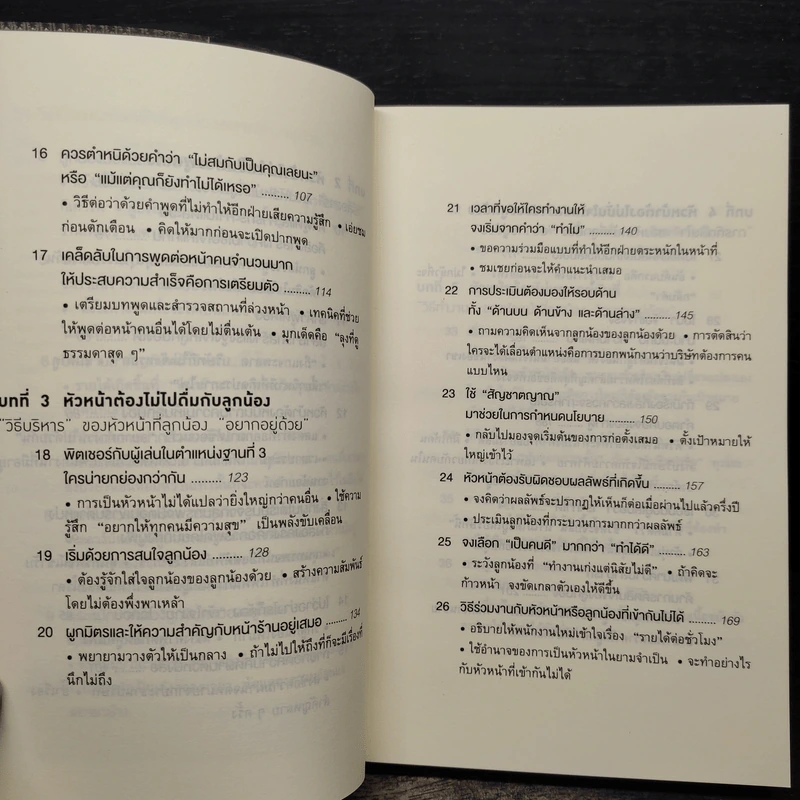 16 ควรตำหนิด้วยคำว่า "ไม่สมกับเป็นคุณเลยนะ"
หรือ "แม้แต่คุณก็ยังทำไม่ได้เหรอ" ......... 107
• วิธีต่อว่าด้วยคำพูดที่ไม่ทำให้อีกฝ่ายเสียความรู้สึก • เอ่ยชม
ก่อนตักเตือน • คิดให้มากก่อนจะเปิดปากพูด
17 เคล็ดลับในการพูดต่อหน้าคนจำนวนมาก
ให้ประสบความสำเร็จคือการเตรียมตัว ......... 114
• เตรียมบทพูดและสำรวจสถานที่ล่วงหน้า • เทคนิคที่ช่วย
ให้พูดต่อหน้าคนอื่นได้โดยไม่ตื่นเต้น • มุกเด็ดคือ "ลุงที่ดู
ธรรมดาสุด ๆ"
บทที่ 3 หัวหน้าต้องไม่ไปดื่มกับลูกน้อง
"วิธีบริหาร" ของหัวหน้าที่ลูกน้อง "อยากอยู่ด้วย"
18 พิตเชอร์กับผู้เล่นในตำแหน่งฐานที่ 3
ใครน่ายกย่องกว่ากัน ......... 123
• การเป็นหัวหน้าไม่ได้แปลว่ายิ่งใหญ่กว่าคนอื่น • ใช้ความ
รู้สึก "อยากให้ทุกคนมีความสุข" เป็นพลังขับเคลื่อน
19 เริ่มด้วยการสนใจลูกน้อง ......... 128
• ต้องรู้จักใส่ใจลูกน้องของลูกน้องด้วย • สร้างความสัมพันธ์
โดยไม่ต้องพึ่งพาเหล้า
20 ผูกมิตรและให้ความสำคัญกับหน้าร้านอยู่เสมอ ......... 134
• พยายามวางตัวให้เป็นกลาง • ถ้าไม่ไปให้ถึงที่ก็จะมีเรื่องที่
นึกไม่ถึง
21 เวลาที่ขอให้ใครทำงานให้
จงเริ่มจากคำว่า "ทำไม" ......... 140
• ขอความร่วมมือแบบที่ทำให้อีกฝ่ายตระหนักในหน้าที่
• ชมเชยก่อนจะให้คำแนะนำเสมอ
22 การประเมินต้องมองให้รอบด้าน
ทั้ง "ด้านบน ด้านข้าง และด้านล่าง" ......... 145
• ถามความคิดเห็นจากลูกน้องของลูกน้องด้วย • การตัดสินว่า
ใครจะได้เลื่อนตำแหน่งคือการบอกพนักงานว่าบริษัทต้องการคน
แบบไหน
23 ใช้ "สัญชาตญาณ"
มาช่วยในการกำหนดนโยบาย ......... 150
• กลับไปมองจุดเริ่มต้นของการก่อตั้งเสมอ • ตั้งเป้าหมายให้
ใหญ่เข้าไว้
24 หัวหน้าต้องรับผิดชอบผลลัพธ์ที่เกิดขึ้น ......... 157
• จงคิดว่าผลลัพธ์จะปรากฏให้เห็นก็ต่อเมื่อผ่านไปแล้วครึ่งปี
• ประเมินลูกน้องที่กระบวนการมากกว่าผลลัพธ์
25 จงเลือก "เป็นคนดี" มากกว่า "ทำได้ดี" ......... 163
• ระวังลูกน้องที่ "ทำงานเก่งแต่นิสัยไม่ดี" • ถ้าคิดจะ
ก้าวหน้า จงขัดเกลาตัวเองให้ดีขึ้น
26 วิธีร่วมงานกับหัวหน้าหรือลูกน้องที่เข้ากันไม่ได้ ......... 169
• อธิบายให้พนักงานใหม่เข้าใจเรื่อง "รายได้ต่อชั่วโมง"
• ใช้อำนาจของการเป็นหัวหน้าในยามจำเป็น • จะทำอย่างไร
กับหัวหน้าที่เข้ากันไม่ได้